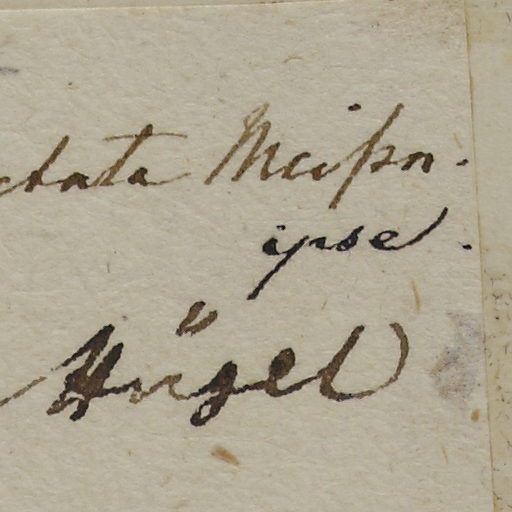 ctata Meißn.
ipse.
Hügel